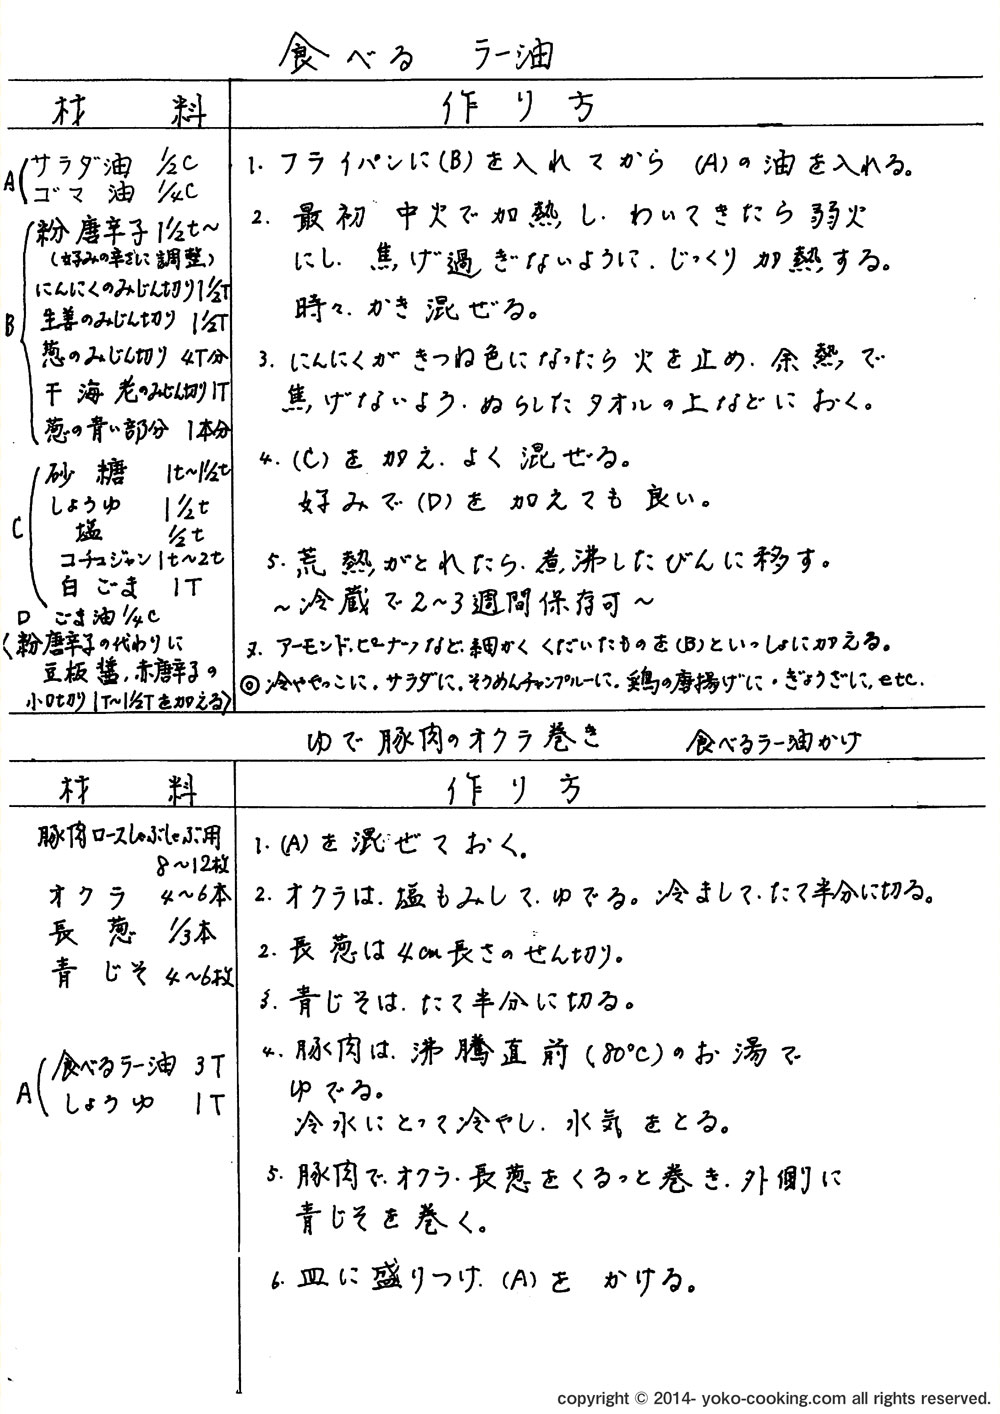 食べる ラー油
材 料
作り方
A サラダ油 1/2C
ゴマ油 1/4C
B 粉唐辛子 1 1/2t〜
(好みの辛さに調整)
にんにくのみじん切り 1 1/2T
生姜のみじん切り 1 1/2T
葱のみじん切り 4T分
干海老のみじん切り 1T
葱の青い部分 1本分
C 砂糖 1t〜1 1/2t
しょうゆ 1 1/2t
塩 1/2t
コチュジャン 1t〜2t
白ごま 1T
D ごま油 1/4C
〈粉唐辛子の代わりに
豆板醤、赤唐辛子の
小口切り 1T〜1 1/2Tを加える〉
1. フライパンに(B)を入れてから (A)の油を入れる。
2. 最初 中火で加熱し、わいてきたら弱火
にし、焦げ過ぎないように、じっくり加熱する。
時々、かき混ぜる。
3. にんにくがきつね色になったら火を止め、余熱で
焦げないよう、ぬらしたタオルの上などにおく。
4. (C)を加え、よく混ぜる。
好みで(D)を加えても良い。
5. 荒熱がとれたら、煮沸したびんに移す。
〜冷蔵で2〜3週間保存可〜
アーモンド、ピーナッツなど、細かくくだいたものを(B)といっしょに加える。
◎冷ややっこに。サラダに。そうめんチャンプルーに。鶏の唐揚げに・ぎょうざに。etc.
ゆで豚肉のオクラ巻き 食べるラー油かけ
材 料
作り方
豚肉ロースしゃぶしゃぶ用
8〜12枚
オクラ 4〜6本
長葱 1/3本
青じそ 4〜6枚
A 食べるラー油 3T
しょうゆ 1T
1. (A)を混ぜておく。
2. オクラは、塩もみして、ゆでる。冷まして、たて半分に切る。
2. 長葱は4cm長さのせん切り。
3. 青じそは、たて半分に切る。
4. 豚肉は、沸騰直前(80℃)のお湯で
ゆでる。
冷水にとって冷やし、水気をとる。
5. 豚肉で、オクラ・長葱をくるっと巻き、外側に
青じそを巻く。
6. 皿に盛りつけ、(A)をかける。
copyright © 2014- yoko-cooking.com all rights reserved.